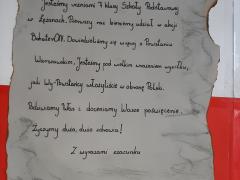 Jesteśmy uczniami 7 klasy Szkoły Podstawowej
w Łężanach. Pierwszy raz bierzemy udział w akcji
BohaterON. Dowiedzieliśmy się więcej o Powstaniu
Warszawskim. Jesteśmy pod wielkim wrażeniem wysiłku,
jaki Wy-Powstańcy włożyliście w obronę Polski.
Podziwiamy Was i doceniamy Wasze poświęcenie.
Życzymy dużo, dużo zdrowia!
Z wyrazami szacunku